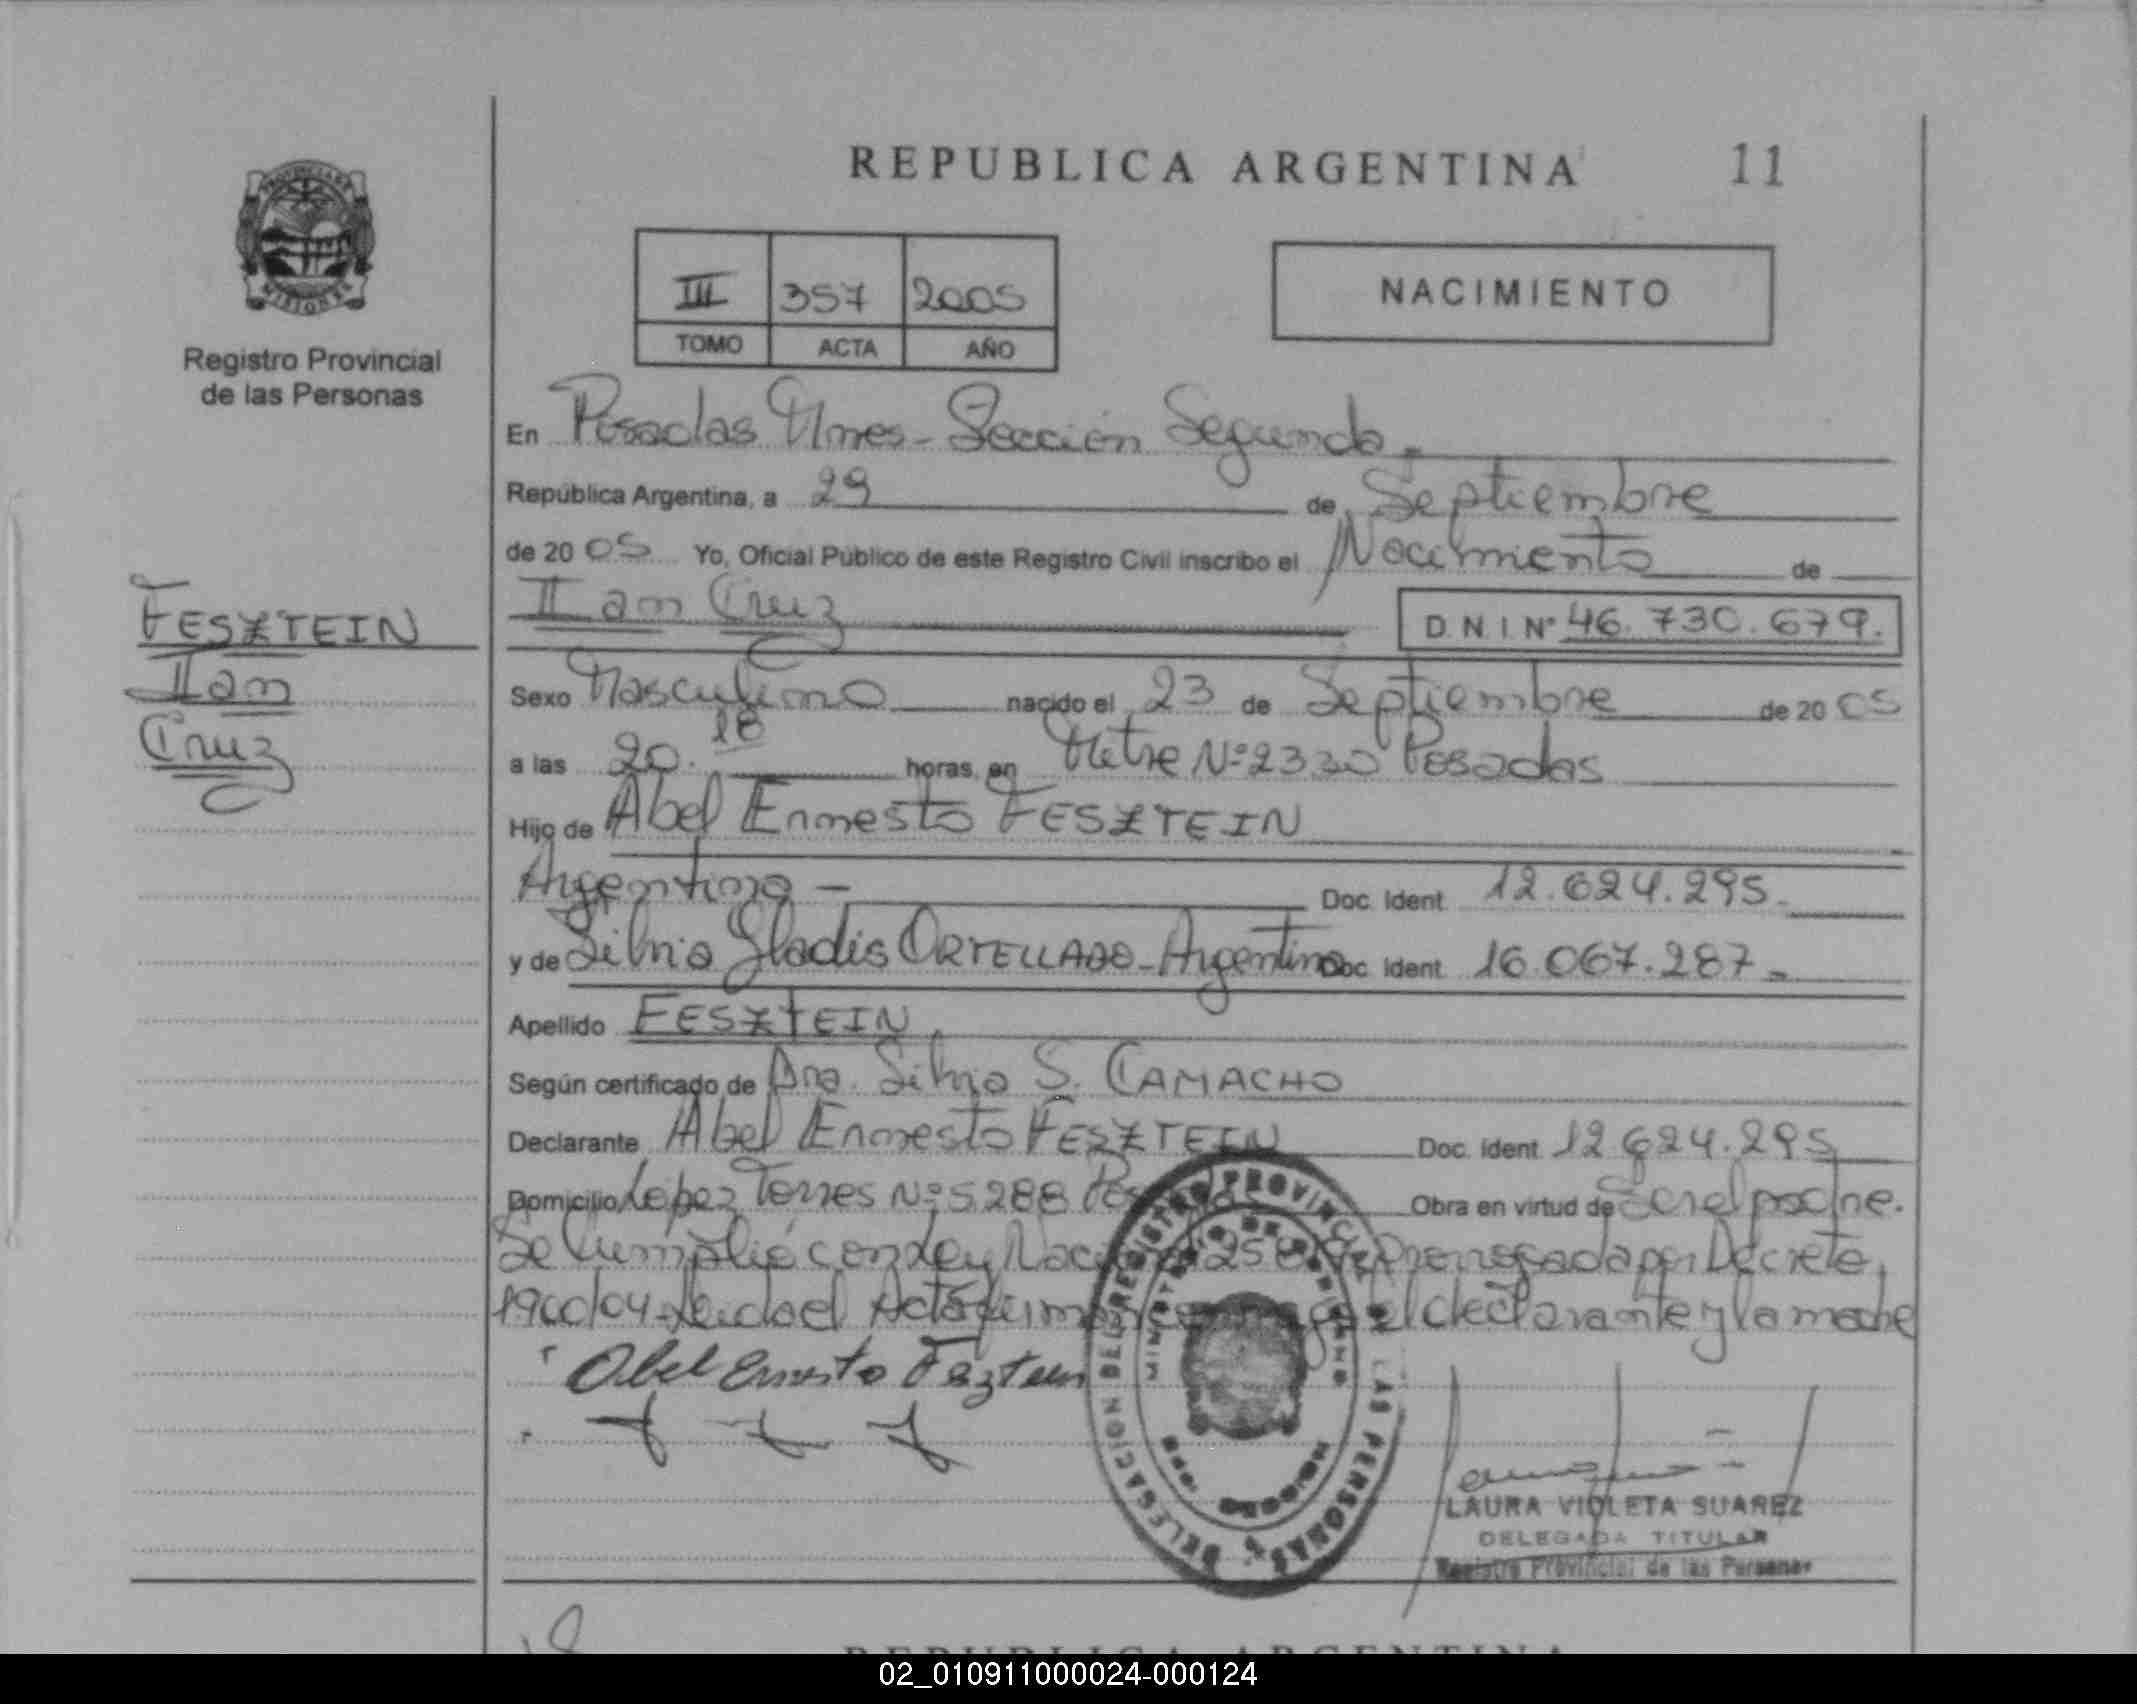 REPUBLICA ARGENTINA 11
PROVINCIA DE
MISIONES
Registro Provincial
de las Personas
III 357 2005
TOMO ACTA AÑO
NACIMIENTO
En Posadas Mnes - Sección Segunda.
República Argentina, a 29 de Septiembre
de 20 05 Yo, Oficial Público de este Registro Civil inscribo el Nacimiento de
Ian Cruz D.N.I Nº 46.730.679.
FESZTEIN
Ian
Cruz
Sexo Masculino nacido el 23 de Septiembre de 20 05
a las 20.18 horas, en Mitre Nº 2330 Posadas
Hijo de Abel Ernesto FESZTEIN
Argentino - Doc. Ident 12.624.295.
y de Silvia Gladis ORTELLADO - Argentina Doc. Ident 16.067.287.-
Apellido FESZTEIN
Según certificado de Dra. Silvia S. CAMACHO
Declarante Abel Ernesto FESZTEIN Doc. Ident 12 624.295
Domicilio Lopez Torres Nº 5288 Obra en virtud de Ser el padre.
Se Cumplió con Ley prorrogada por Decreto
1900/04 - Leida el Acta el declarante y la madre
Abel Ernesto Feztein
DELEGACION DEL REGISTRO PROVINCIAL DE LAS PERSONAS
MINISTERIO DE GOBIERNO
LAURA VIOLETA SUAREZ
DELEGADA TITULAR
Registro Provincial de las Personas
REPUBLICA ARGENTINA
02_010911000024-000124